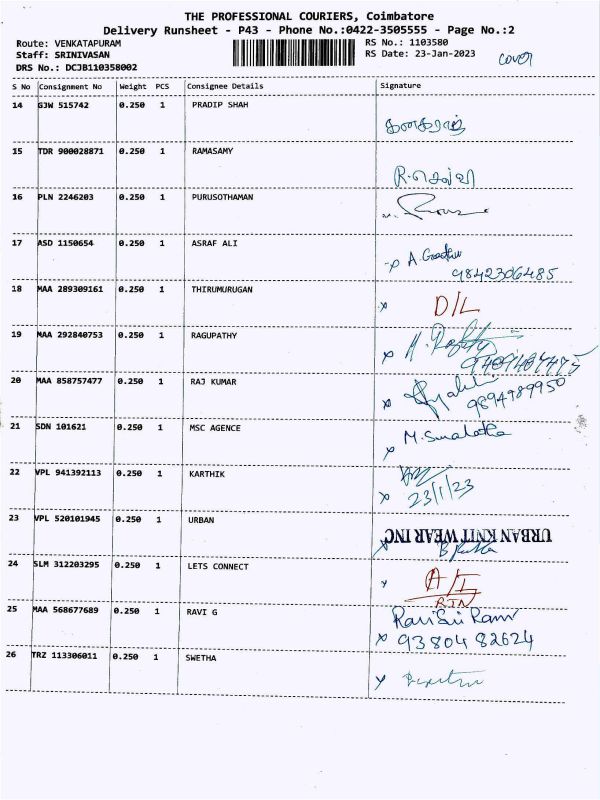 THE PROFESSIONAL COURIERS, Coimbatore
Delivery Runsheet - P43 - Phone No.:0422-3505555 - Page No.:2
Route: VENKATAPURAM RS No.: 1103580
Staff: SRINIVASAN RS Date: 23-Jan-2023 cover
DRS No.: DCJB110358002
S No Consignment No Weight PCS Consignee Details Signature
14 GJW 515742 0.250 1 PRADIP SHAH
கனகராஜ்
15 TDR 900028871 0.250 1 RAMASAMY
R. செல்வி
16 PLN 2246203 0.250 1 PURUSOTHAMAN
17 ASD 1150654 0.250 1 ASRAF ALI
x A.
9842306485
18 MAA 289309161 0.250 1 THIRUMURUGAN
x D/L
19 MAA 292840753 0.250 1 RAGUPATHY
x
20 MAA 858757477 0.250 1 RAJ KUMAR
x 9894789950
21 SDN 101621 0.250 1 MSC AGENCE
M.
x
22 VPL 941392113 0.250 1 KARTHIK
x 23/1/23
23 VPL 520101945 0.250 1 URBAN
URBAN KNIT WEAR INC
x B
24 SLM 312203295 0.250 1 LETS CONNECT
x A/I
RTN
25 MAA 568677689 0.250 1 RAVI G
Ravi Sri Ram
x 9380482624
26 TRZ 113306011 0.250 1 SWETHA
x